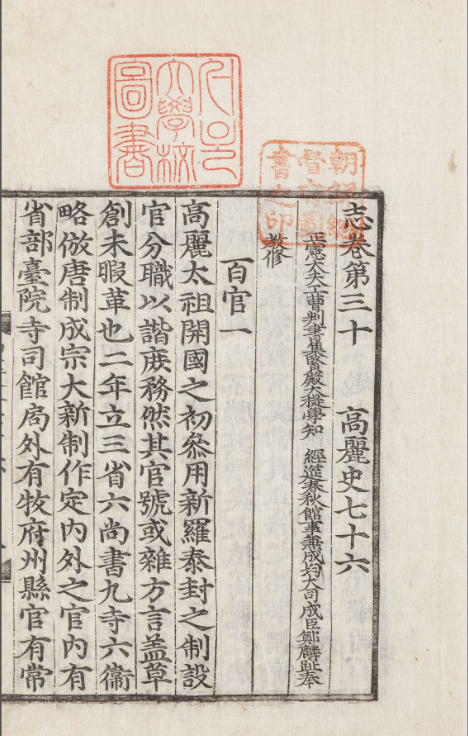 서울大學校圖書
朝鮮總督府圖書之印
志卷第三十 高麗史七十六
正憲大夫工曹判書集賢殿大提學知 經筵春秋館事兼成均大司成臣鄭麟趾奉
敎修
百官一
高麗太祖開國之初叅用新羅泰封之制設
官分職以諧庶務然其官號或雜方言盖草
創未暇革也二年立三省六尚書九寺六衛
略倣唐制成宗大新制作定內外之官內有
省部臺院寺司館局外有牧府州縣官有常